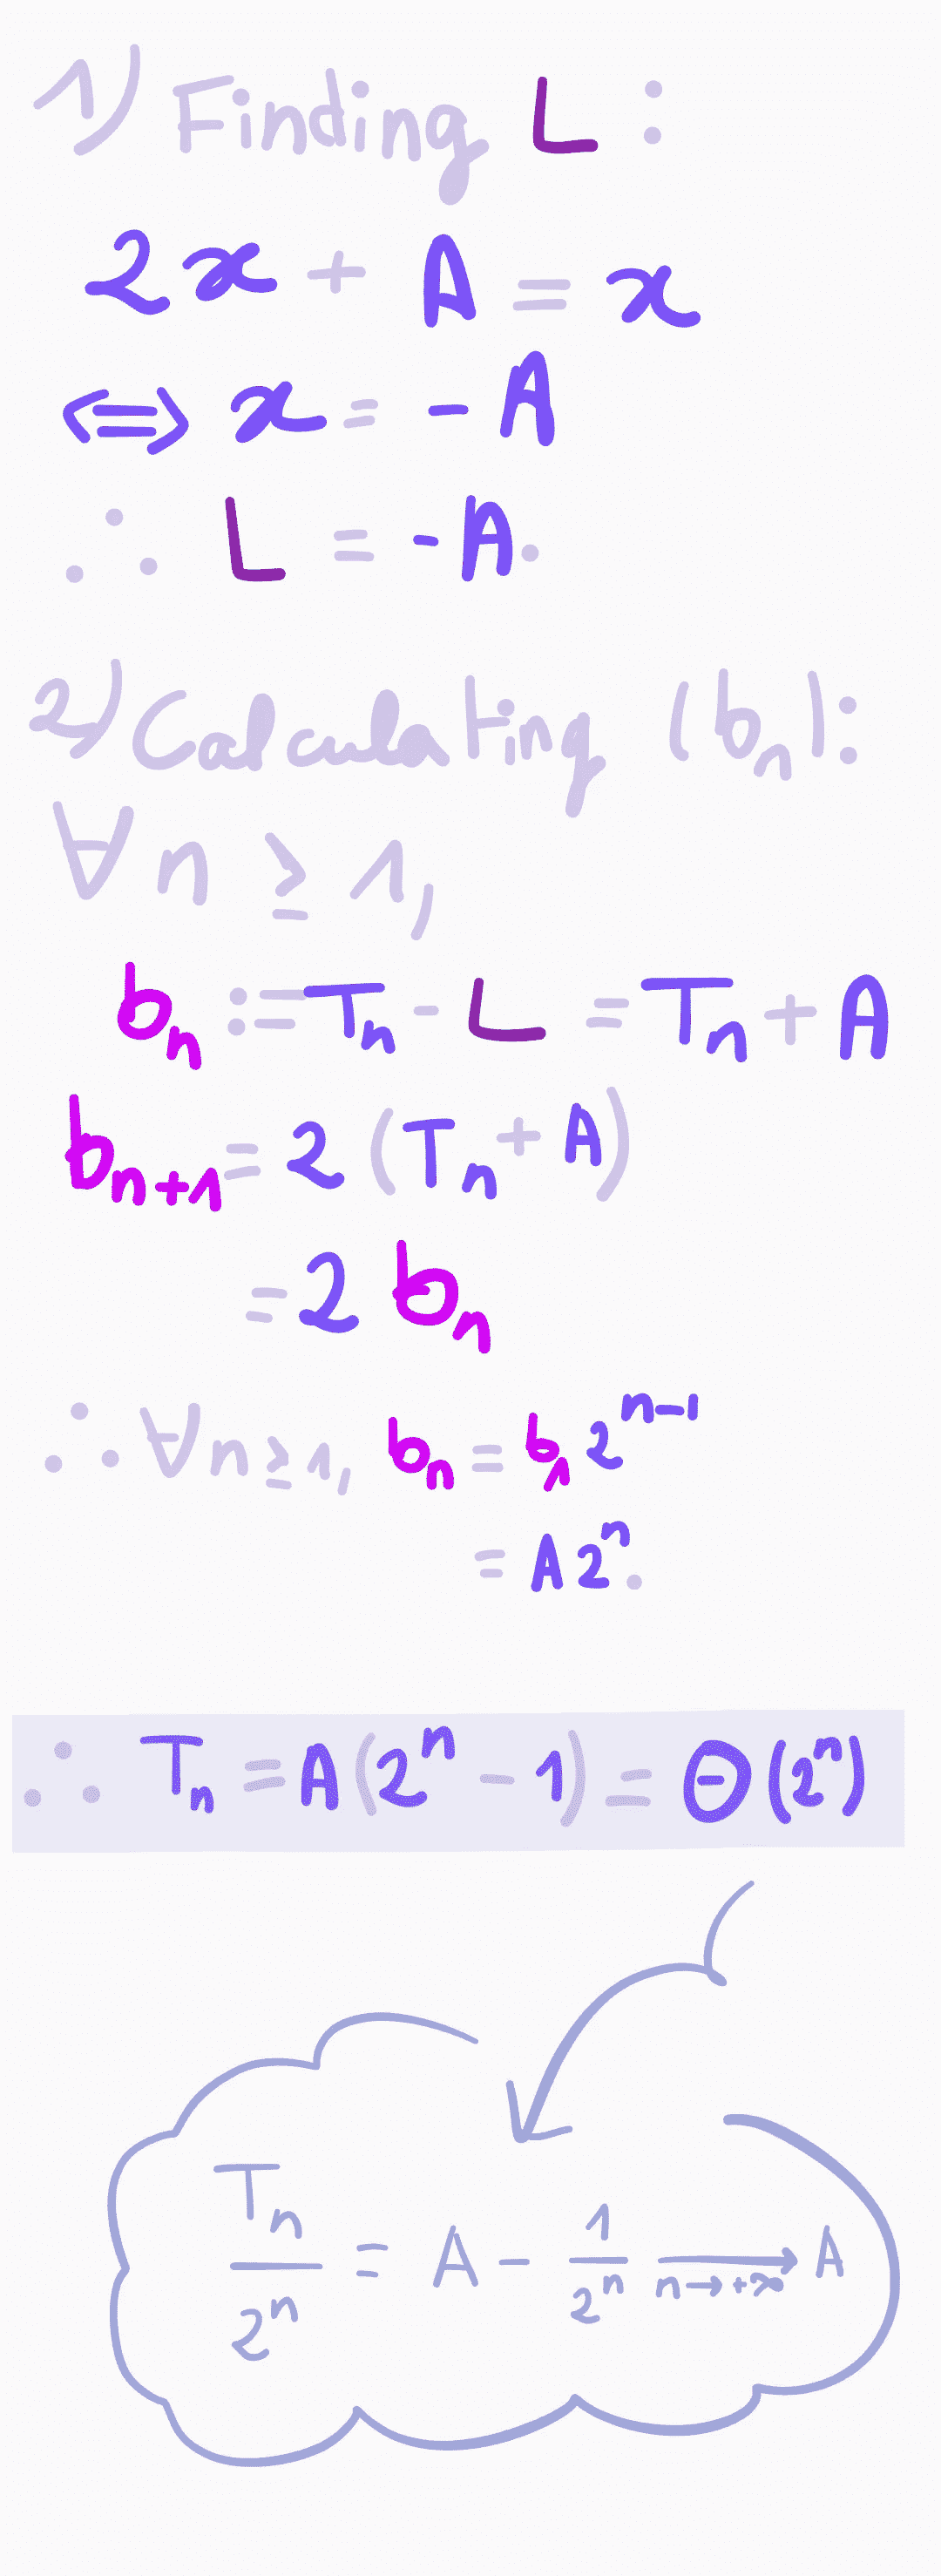 1) Finding L :
2x + A = x
⟺ x = - A
∴ L = - A.
2) Calculating (bₙ):
∀ n ≥ 1,
bₙ := Tₙ - L = Tₙ + A
bₙ₊₁ = 2 (Tₙ + A)
= 2 bₙ
∴ ∀n ≥ 1, bₙ = b₁ 2ⁿ⁻¹
= A 2ⁿ.
∴ Tₙ = A(2ⁿ - 1) = Θ(2ⁿ)
Tₙ/2ⁿ = A - 1/2ⁿ ⟶ (n→+∞) A